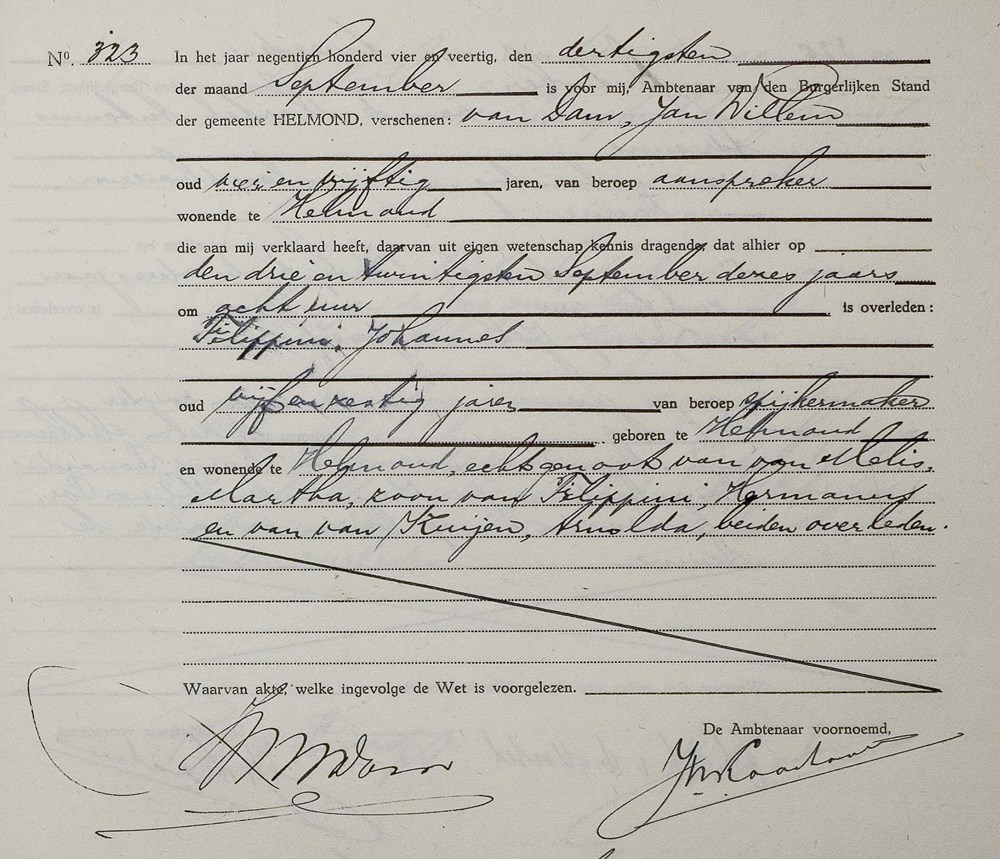 Nº. 323 In het jaar negentien honderd vier en veertig, den dertigsten
der maand September is voor mij, Ambtenaar van den Burgerlijken Stand
der gemeente HELMOND, verschenen: van Dam, Jan Willem
oud en vijftig jaren, van beroep aanspreker
wonende te Helmond
die aan mij verklaard heeft, daarvan uit eigen wetenschap kennis dragende, dat alhier op
den drie en twintigsten September dezes jaars
om acht uur is overleden:
Filippini, Johannes
oud vijf en zestig jaren van beroep spijkermaker
geboren te Helmond
en wonende te Helmond, echtgenoot van van Melis,
Martha, zoon van Filippini, Hermanus
en van van Kuijen, Arnolda, beiden overleden.
Waarvan akte, welke ingevolge de Wet is voorgelezen.
De Ambtenaar voornoemd,